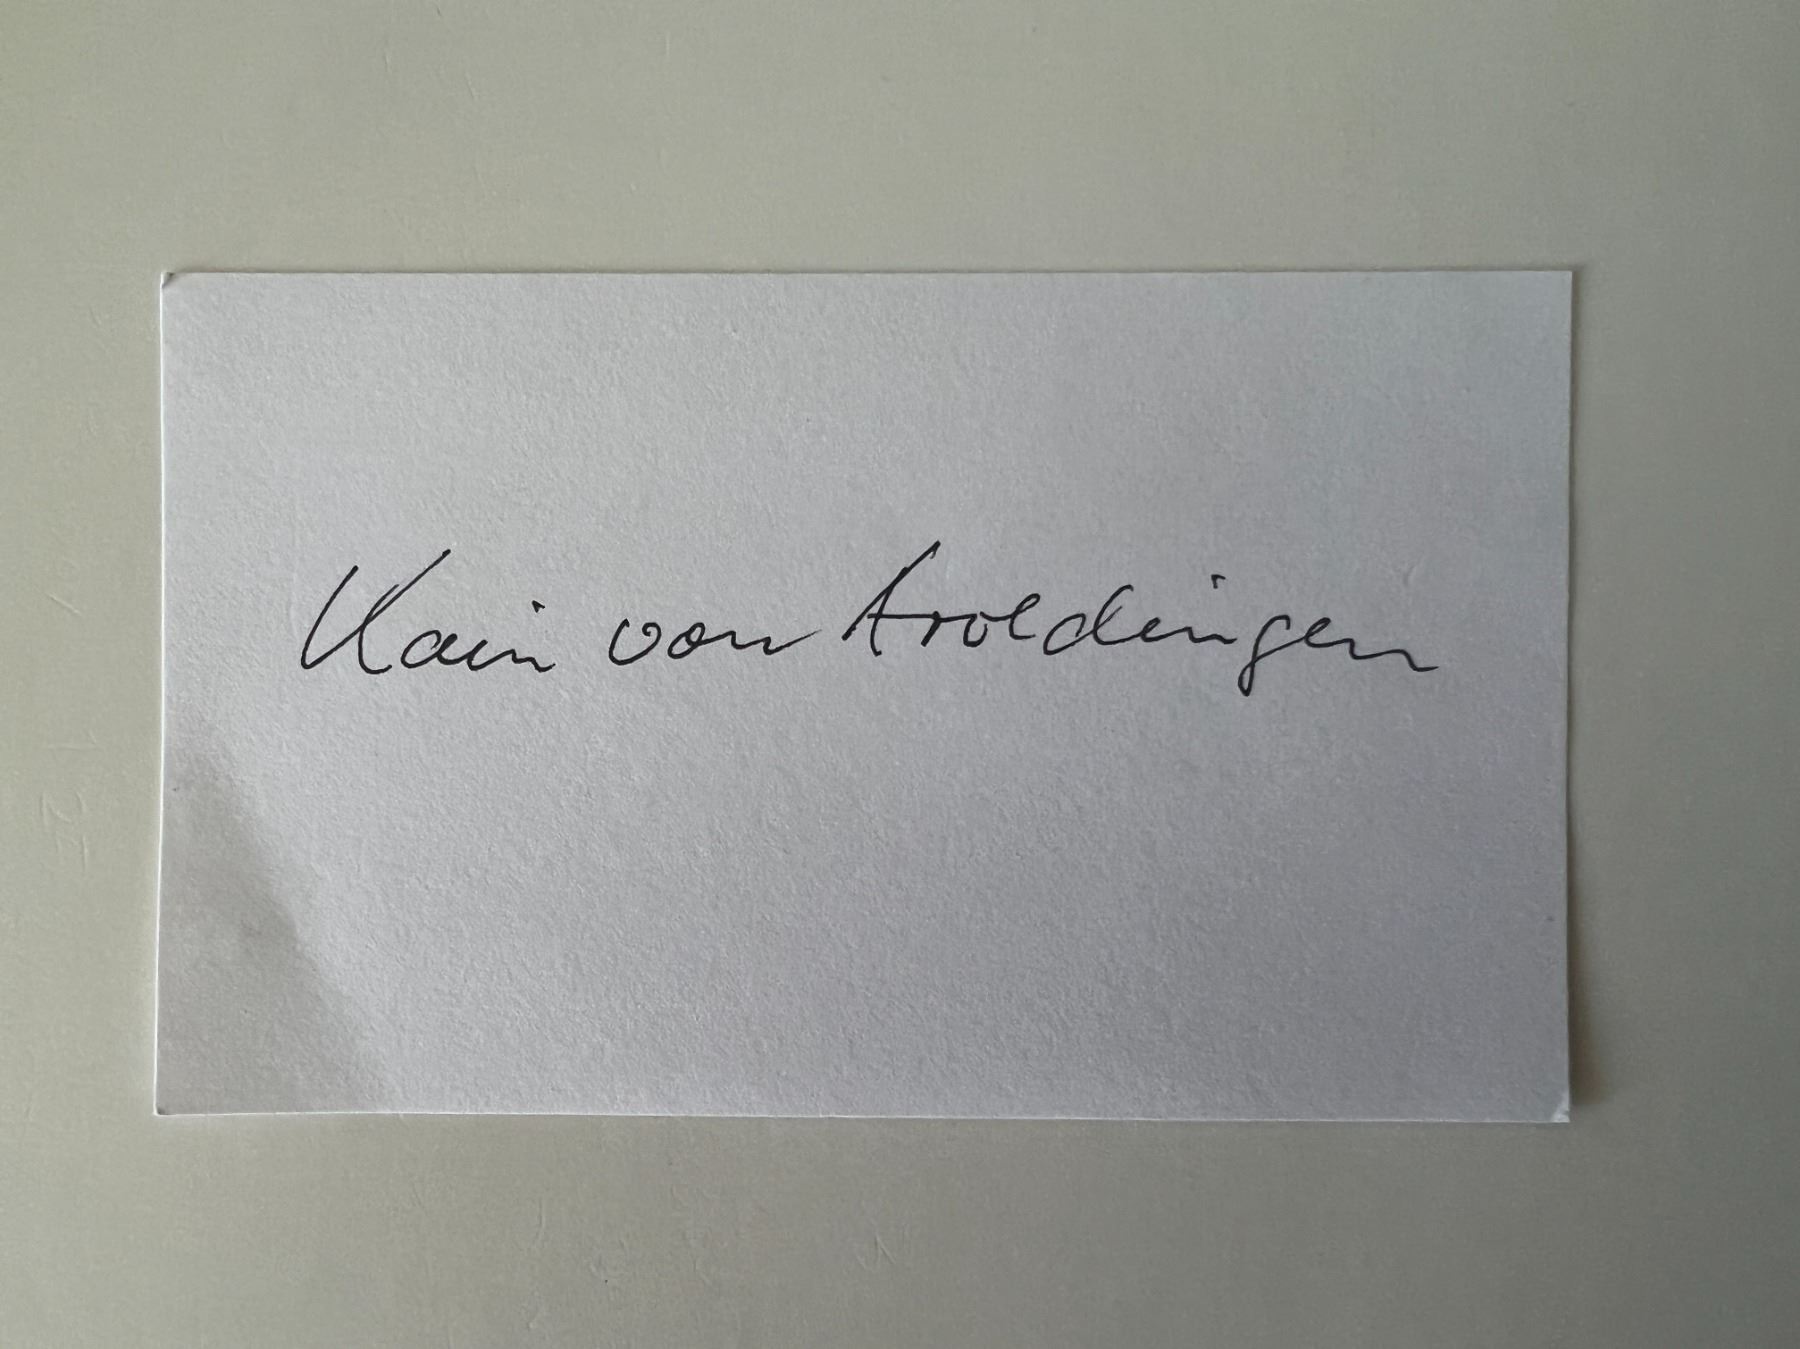 Karin von Aroldingen